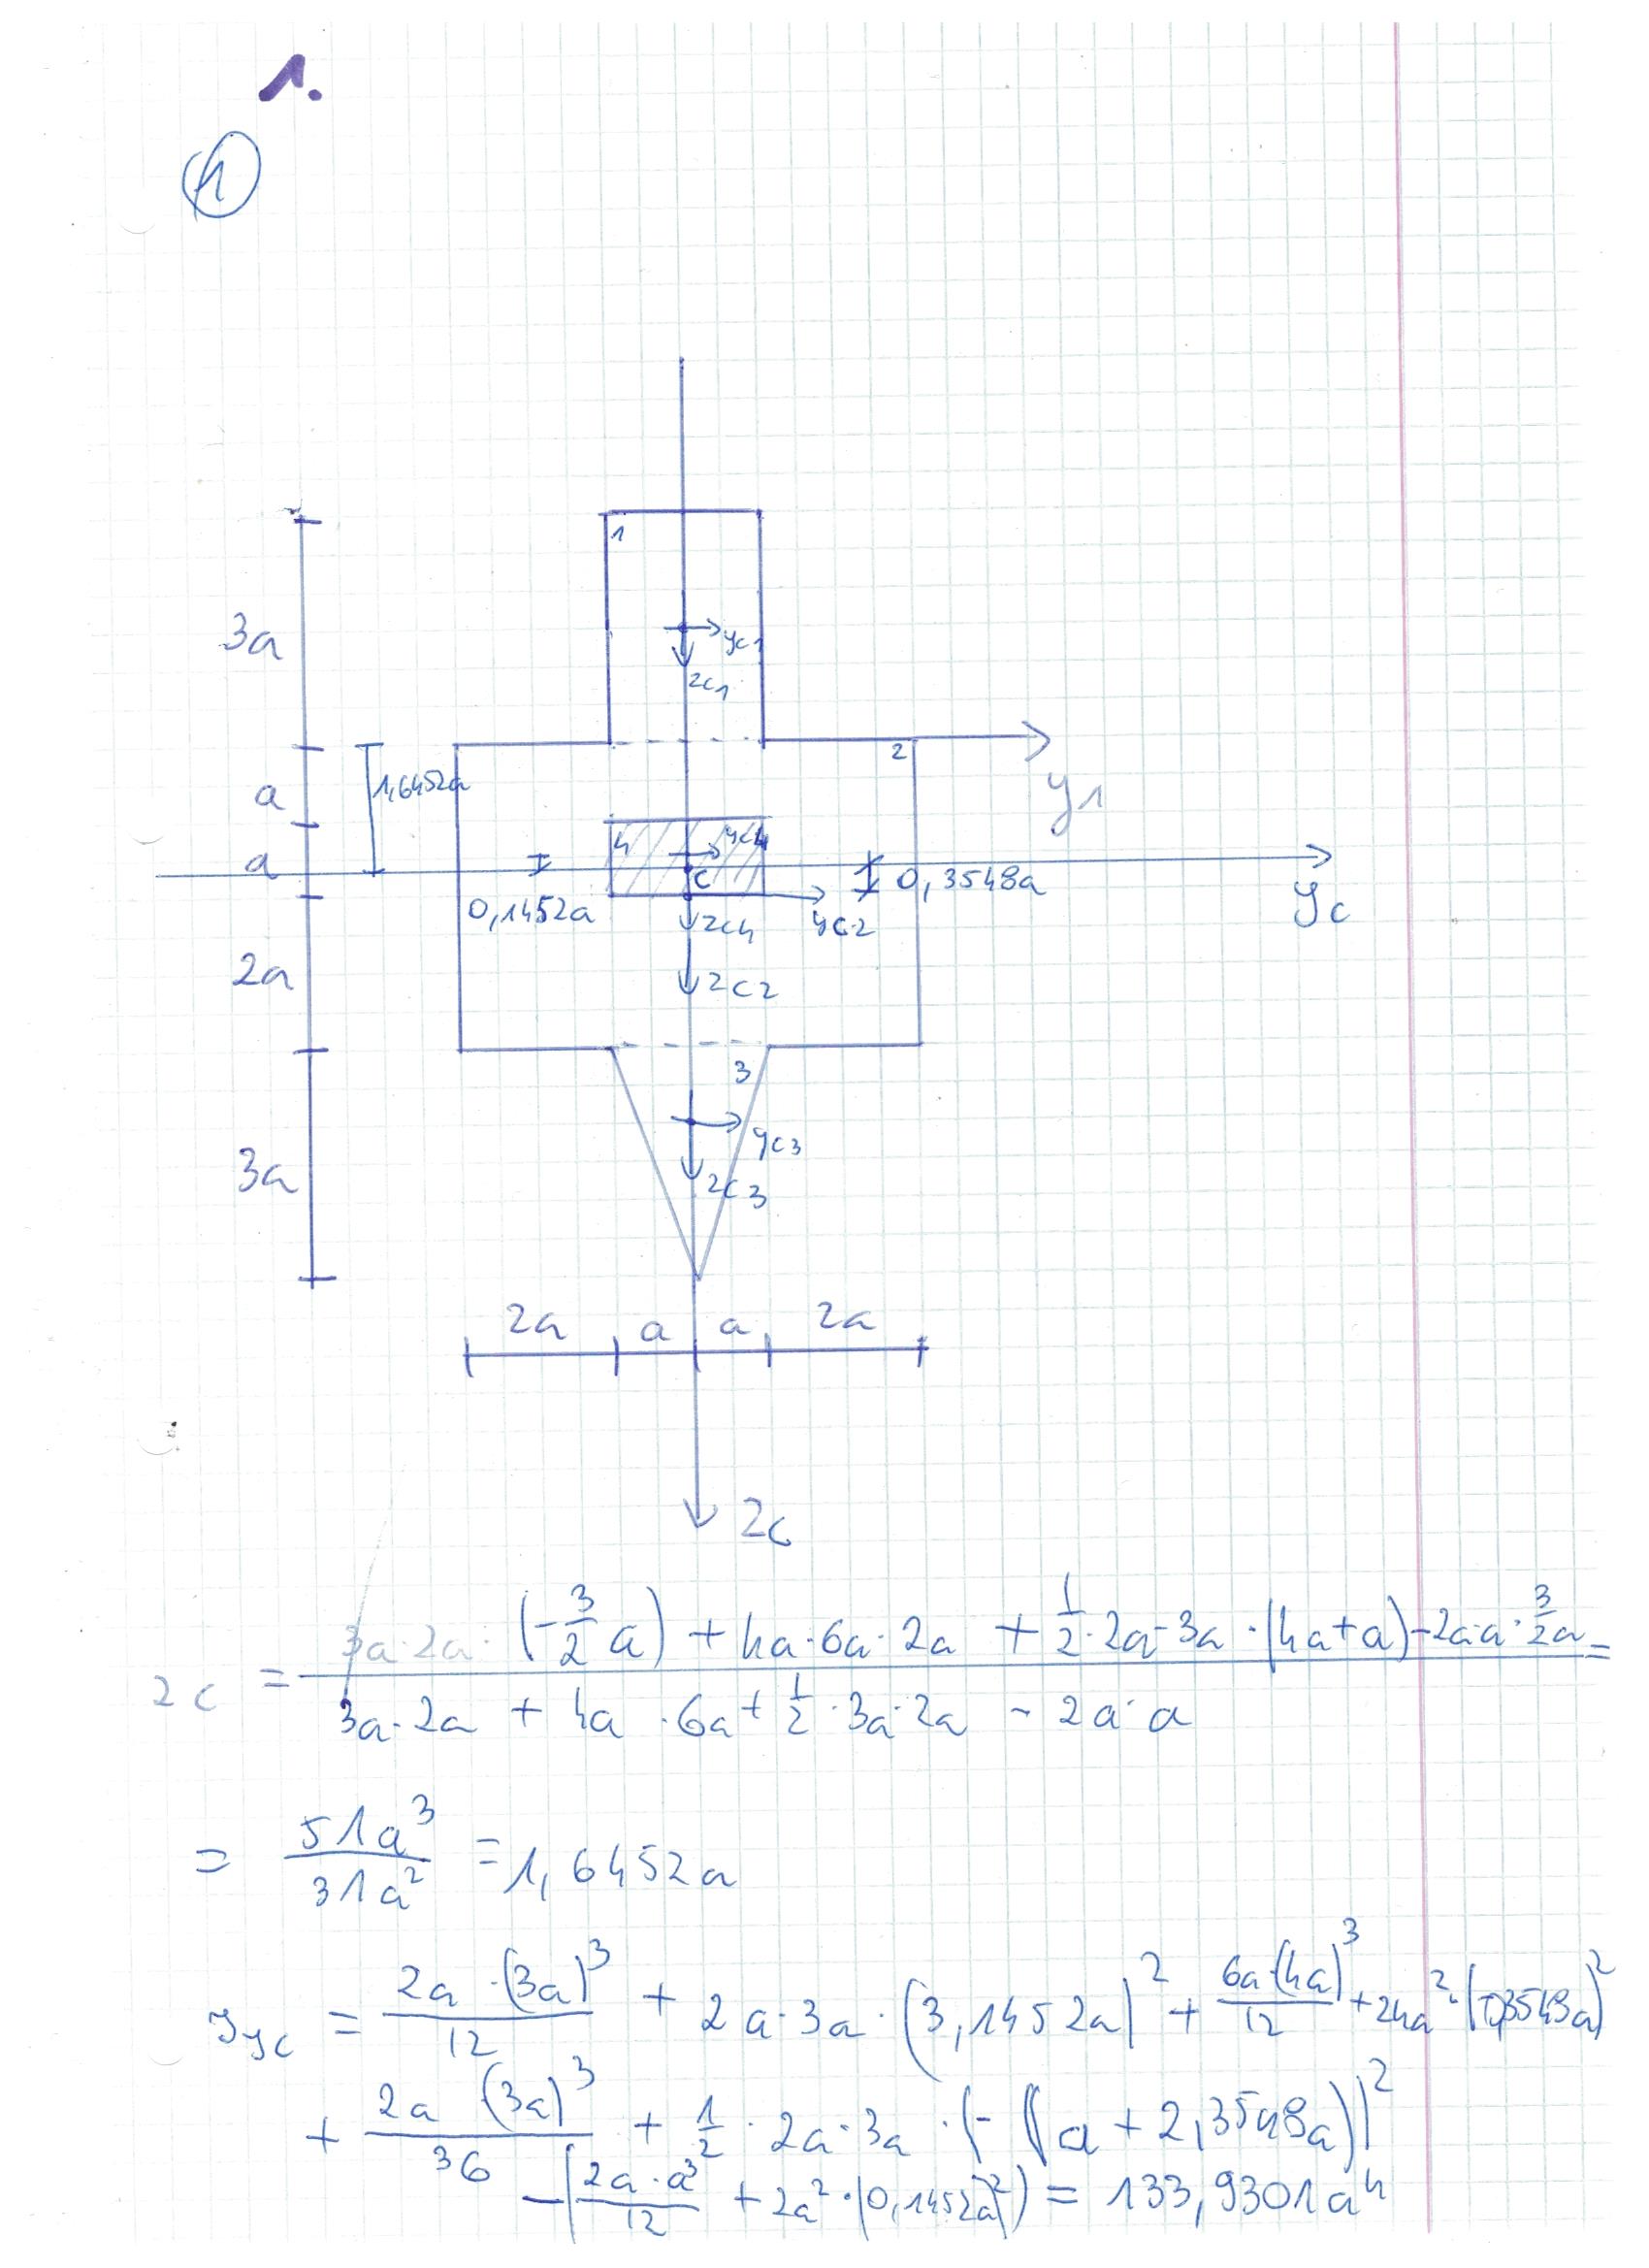 1.
h
1
3a
yc1
zc1
2
y1
a
1,6452a
4
yc4
a
c
0,3548a
yc
0,1452a
zc4
yc2
2a
zc2
3
yc3
3a
zc3
2a a a 2a
zc
zc = (3a·2a·(-3/2 a) + 4a·6a·2a + 1/2·2a·3a·(4a+a) - 2a·a·3/2a) / (3a·2a + 4a·6a + 1/2·3a·2a - 2a·a) =
= 51a³/31a² = 1,6452a
Jyc = 2a·(3a)³/12 + 2a·3a·(3,1452a)² + 6a·(4a)³/12 + 24a²·(0,3548a)²
+ 2a (3a)³/36 + 1/2·2a·3a·(-(a + 2,3548a))²
- (2a·a³/12 + 2a²·(0,1452a)²) = 133,9301a⁴